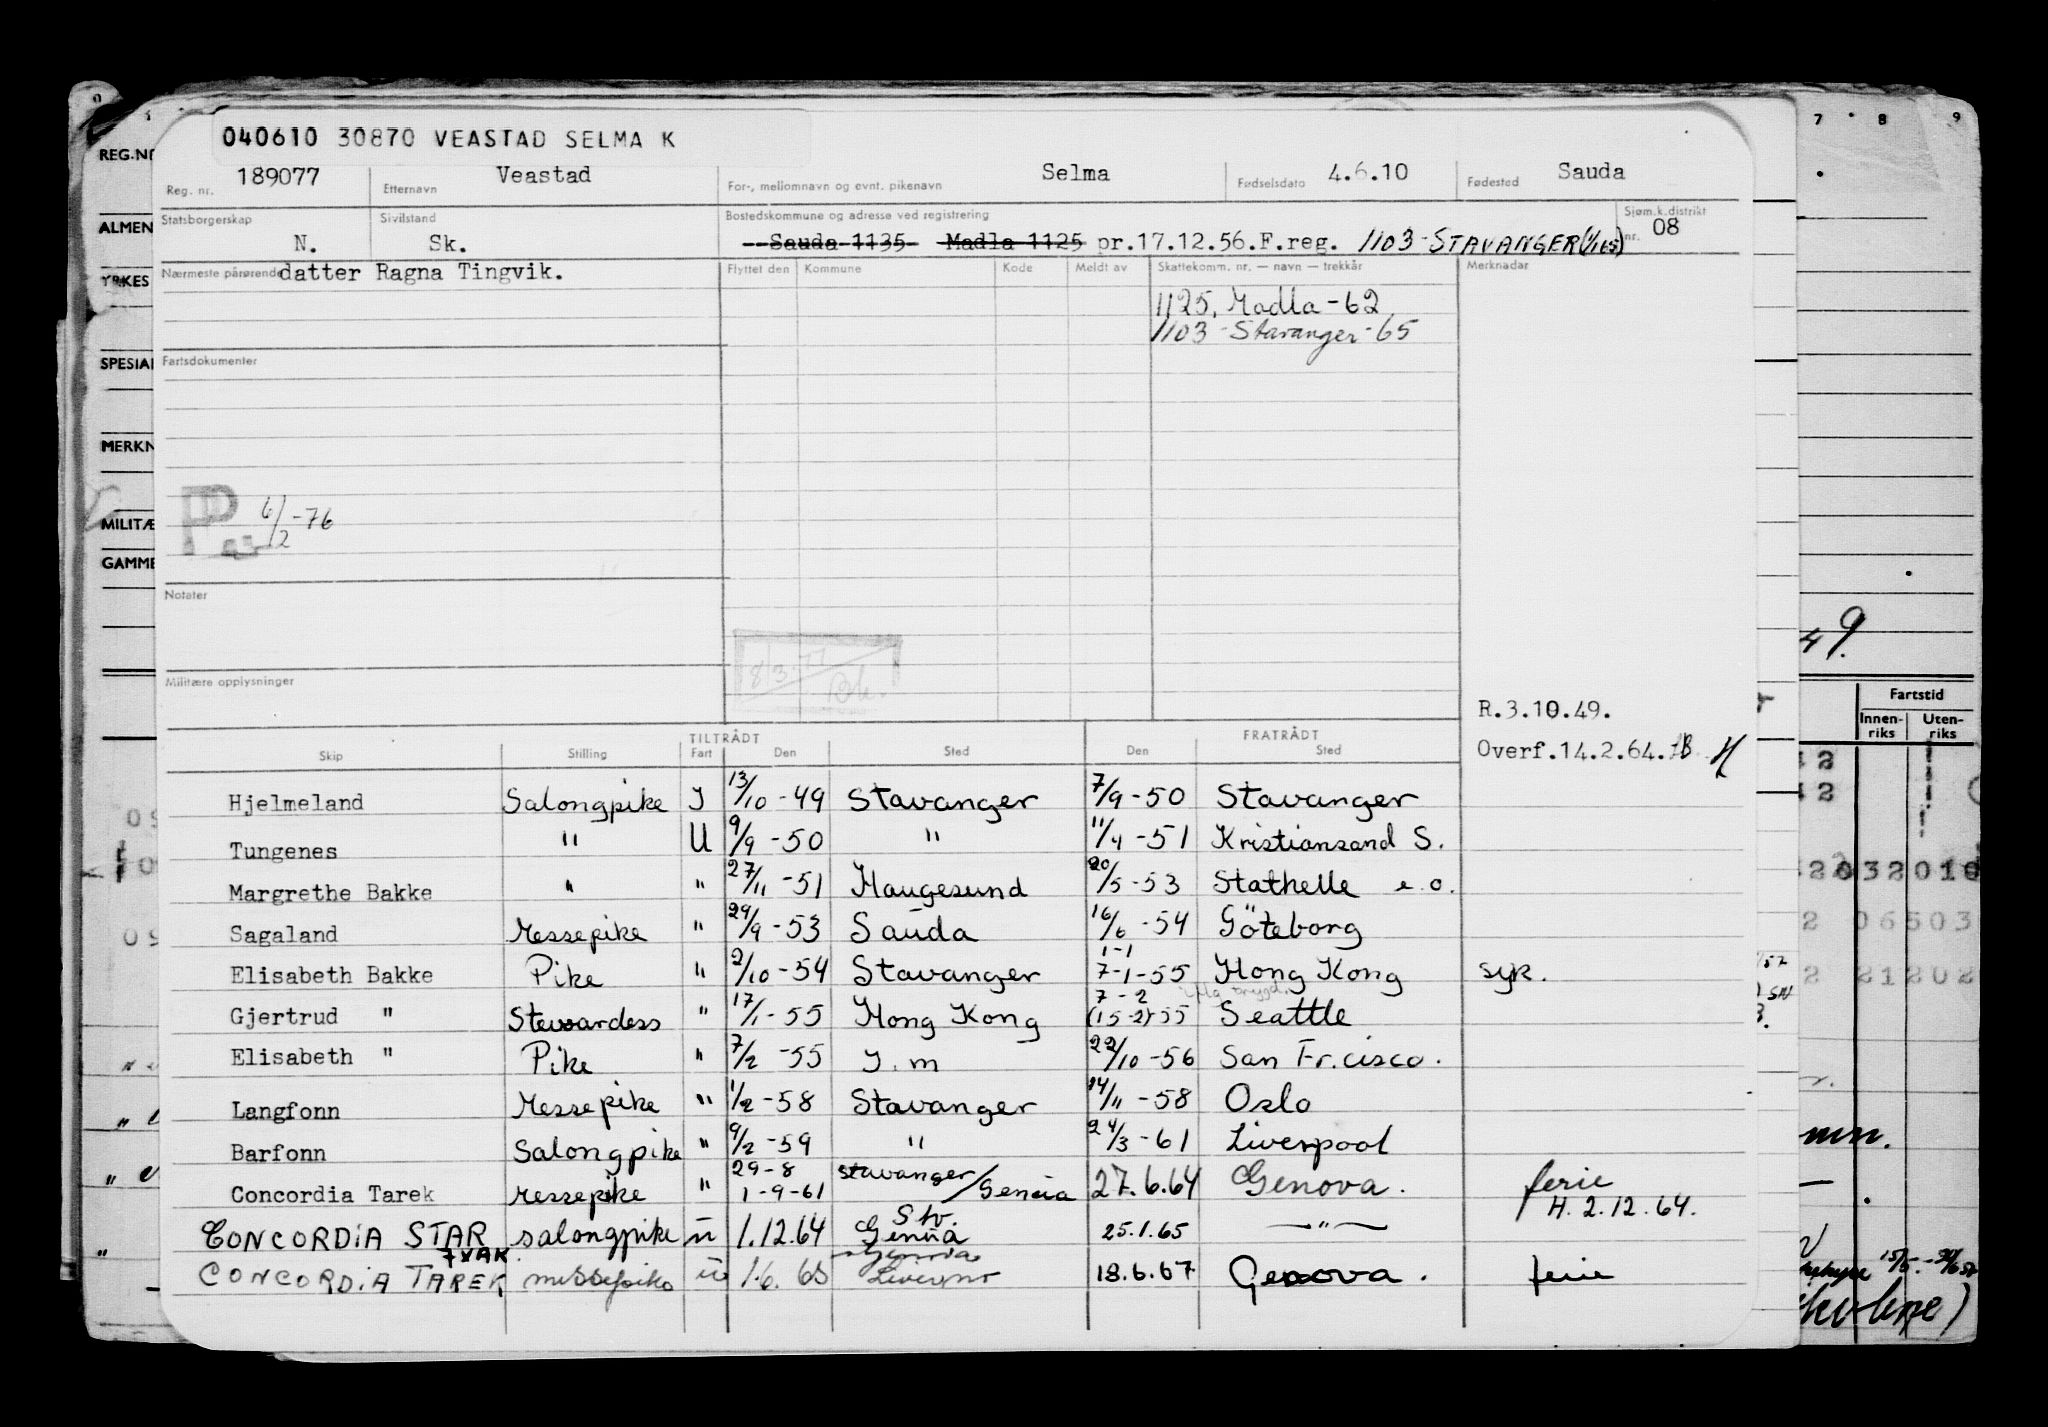 040610 30870 VEASTAD SELMA K
Reg. nr. 189077 Etternavn Veastad For-, mellomnavn og evnt. pikenavn Selma Fødselsdato 4.6.10 Fødested Sauda
Statsborgerskap N. Sivilstand Sk. Bostedskommune og adresse ved registrering Sauda 1135 Madla 1125 pr.17.12.56.F.reg. 1103-STAVANGER(1/1 65) Sjøm.k.distrikt nr. 08
Nærmeste pårørende datter Ragna Tingvik. Flyttet den Kommune Kode Meldt av Skattekomm. nr. — navn — trekkår Merknader
1125, Madla-62
1103-Stavanger-65
Fartsdokumenter
PP 6/2-76
Notater
8/3-77
Militære opplysninger
R.3.10.49.
Overf.14.2.64.
TILTRÅDT FRATRÅDT
Skip Stilling Fart Den Sted Den Sted
Hjelmeland Salongpike I 13/10-49 Stavanger 7/9-50 Stavanger
Tungenes " U 9/9-50 " 11/4-51 Kristiansand S.
Margrethe Bakke " " 27/11-51 Haugesund 20/5-53 Stathelle e.o.
Sagaland Messepike " 29/9-53 Sauda 16/6-54 Göteborg
1-1
Elisabeth Bakke Pike " 2/10-54 Stavanger 7-1-55 Hong Kong syk.
7-2
Gjertrud " Stewardess " 17/1-55 Hong Kong (15-2)-55 Seattle
Elisabeth " Pike " 7/2-55 I.m 22/10-56 San Fr.cisco.
Langfonn Messepike " 1/2-58 Stavanger 14/11-58 Oslo
Barfonn Salongpike " 9/2-59 " 24/3-61 Liverpool
29-8 Stavanger/
Concordia Tarek Messepike " 1-9-61 Genua 27.6.64 Genova. ferie
H. 2.12.64.
Stv.
CONCORDIA STAR salongpike u 1.12.64 Genua 25.1.65 —"—
Genova
CONCORDIA TAREK messepike u 1.6.65 18.6.67 Genova. ferie
REG.NR
ALMEN
YRKES
SPESIAL
MERKN
MILITÆ
GAMME
7 8 9
49.
Fartstid
Innen-riks Uten-riks